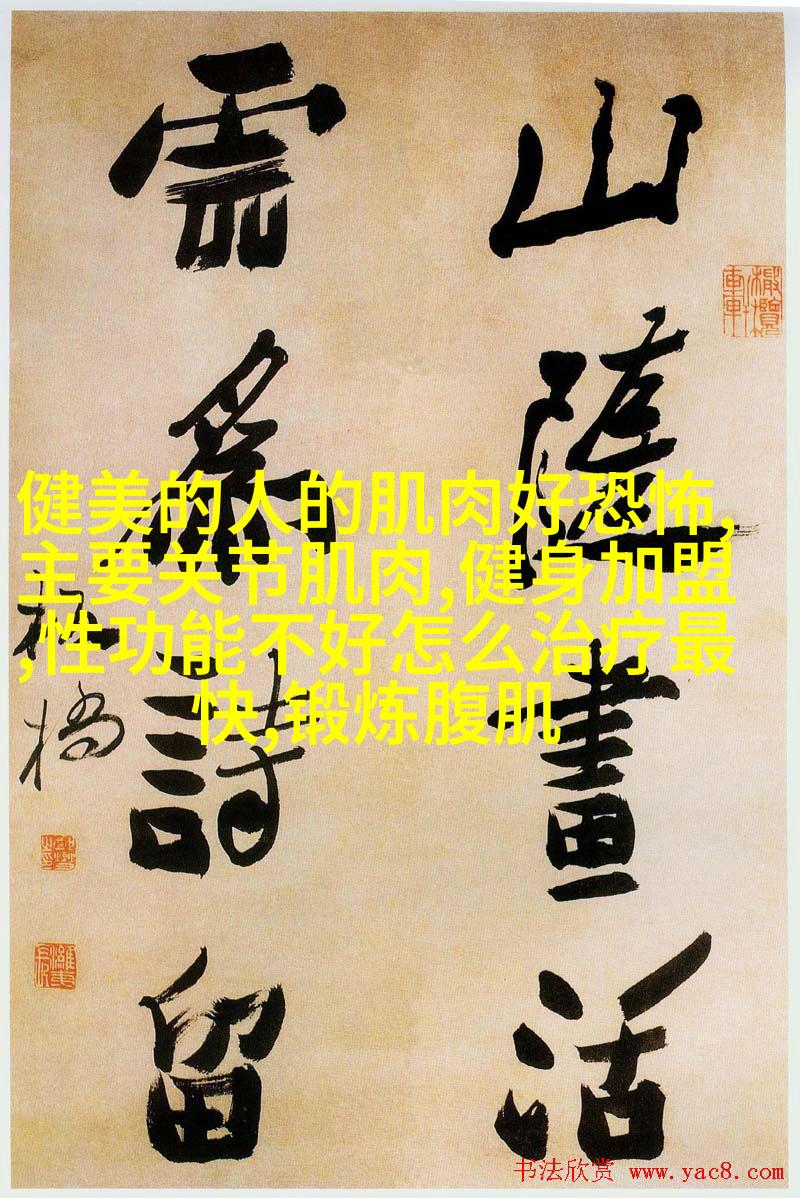 山隨畫活
雲爲詩留
板橋
健美的人的肌肉好恐怖,
主要关节肌肉,健身加盟
,性功能不好怎么治疗最
快,锻炼腹肌
书法欣赏 www.yac8.com